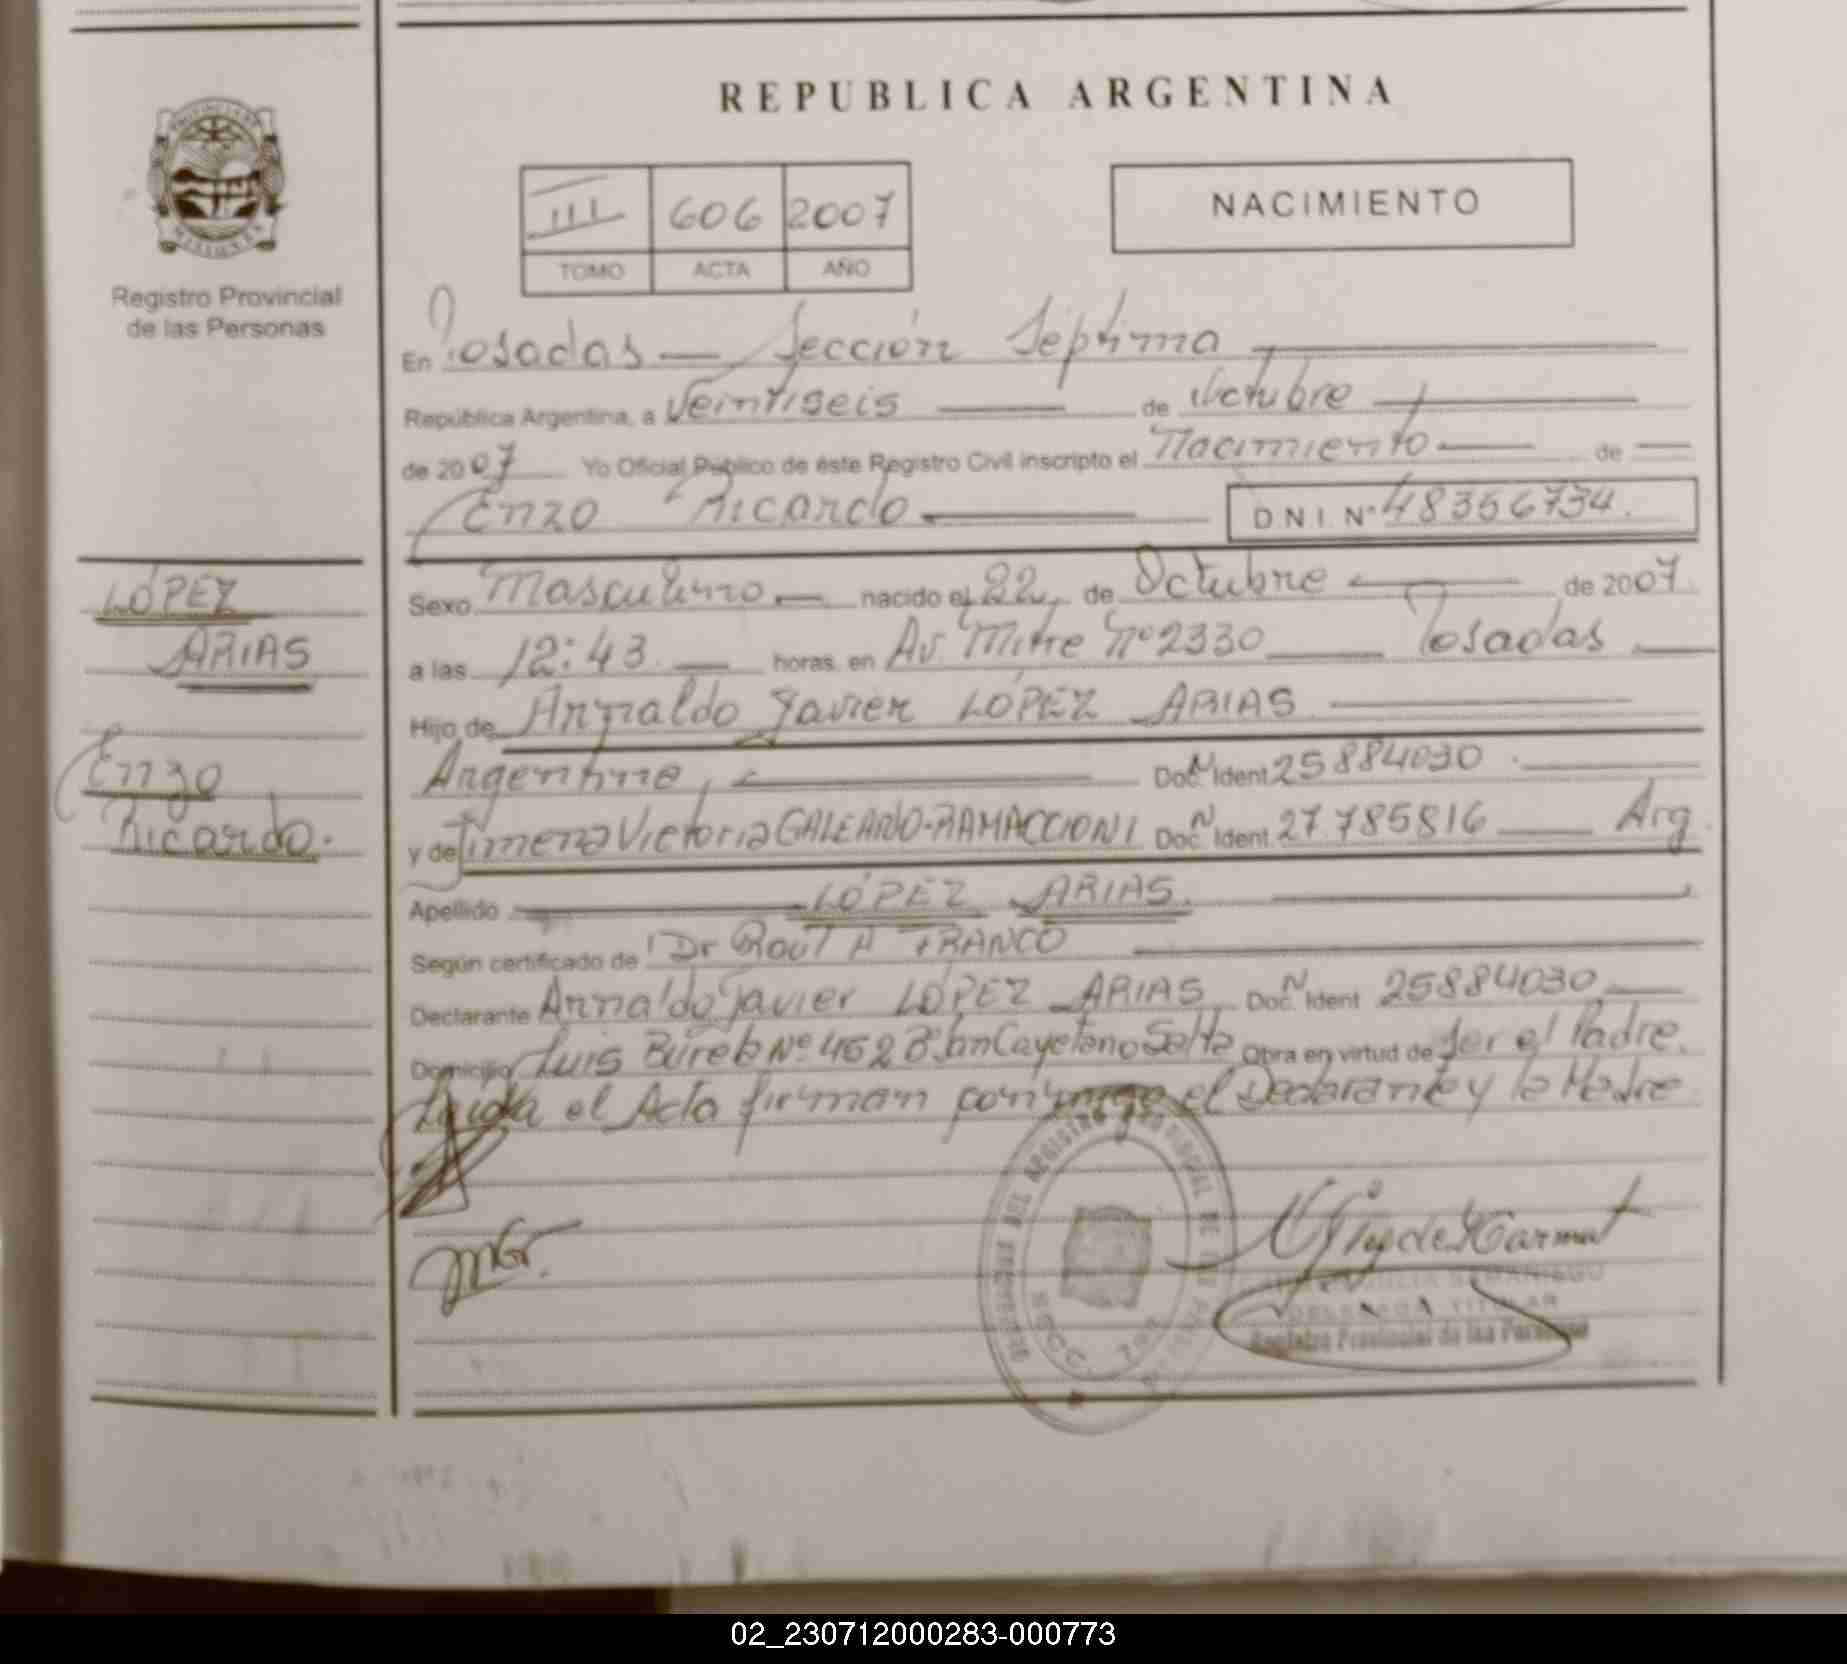 REPUBLICA ARGENTINA
PROVINCIA DE
MISIONES
Registro Provincial
de las Personas
III 606 2007
TOMO ACTA AÑO
NACIMIENTO
En Posadas — Sección Séptima
República Argentina, a Veintiseis de Octubre
de 2007 Yo Oficial Público de éste Registro Civil inscripto el Nacimiento de
Enzo Ricardo D N I. Nº 48356734.
LÓPEZ
ARIAS
Enzo
Ricardo.
Sexo Masculino nacido el 22, de Octubre de 2007
a las 12:43. horas, en Av. Mitre Nº 2330 Posadas
Hijo de Arnaldo Javier LÓPEZ ARIAS
Argentino, Doc. N Ident 25884030.
y de Jimena Victoria GALEANO-RAMACCIONI Doc. N Ident. 27.785816 Arg.
Apellido LÓPEZ ARIAS.
Según certificado de Dr Raúl A FRANCO
Declarante Arnaldo Javier LÓPEZ ARIAS Doc. N Ident 25884030
Domicilio Luis Nº 452 Bº San Cayetano Salta Obra en virtud de Ser el Padre.
Leída el Acta firman conmigo el Declarante y la Madre
DEL REGISTRO PROVINCIAL DE
SECC. 7ma
SAMANIEGO
DELEGADA TITULAR
Registro Provincial de las Personas
02_230712000283-000773